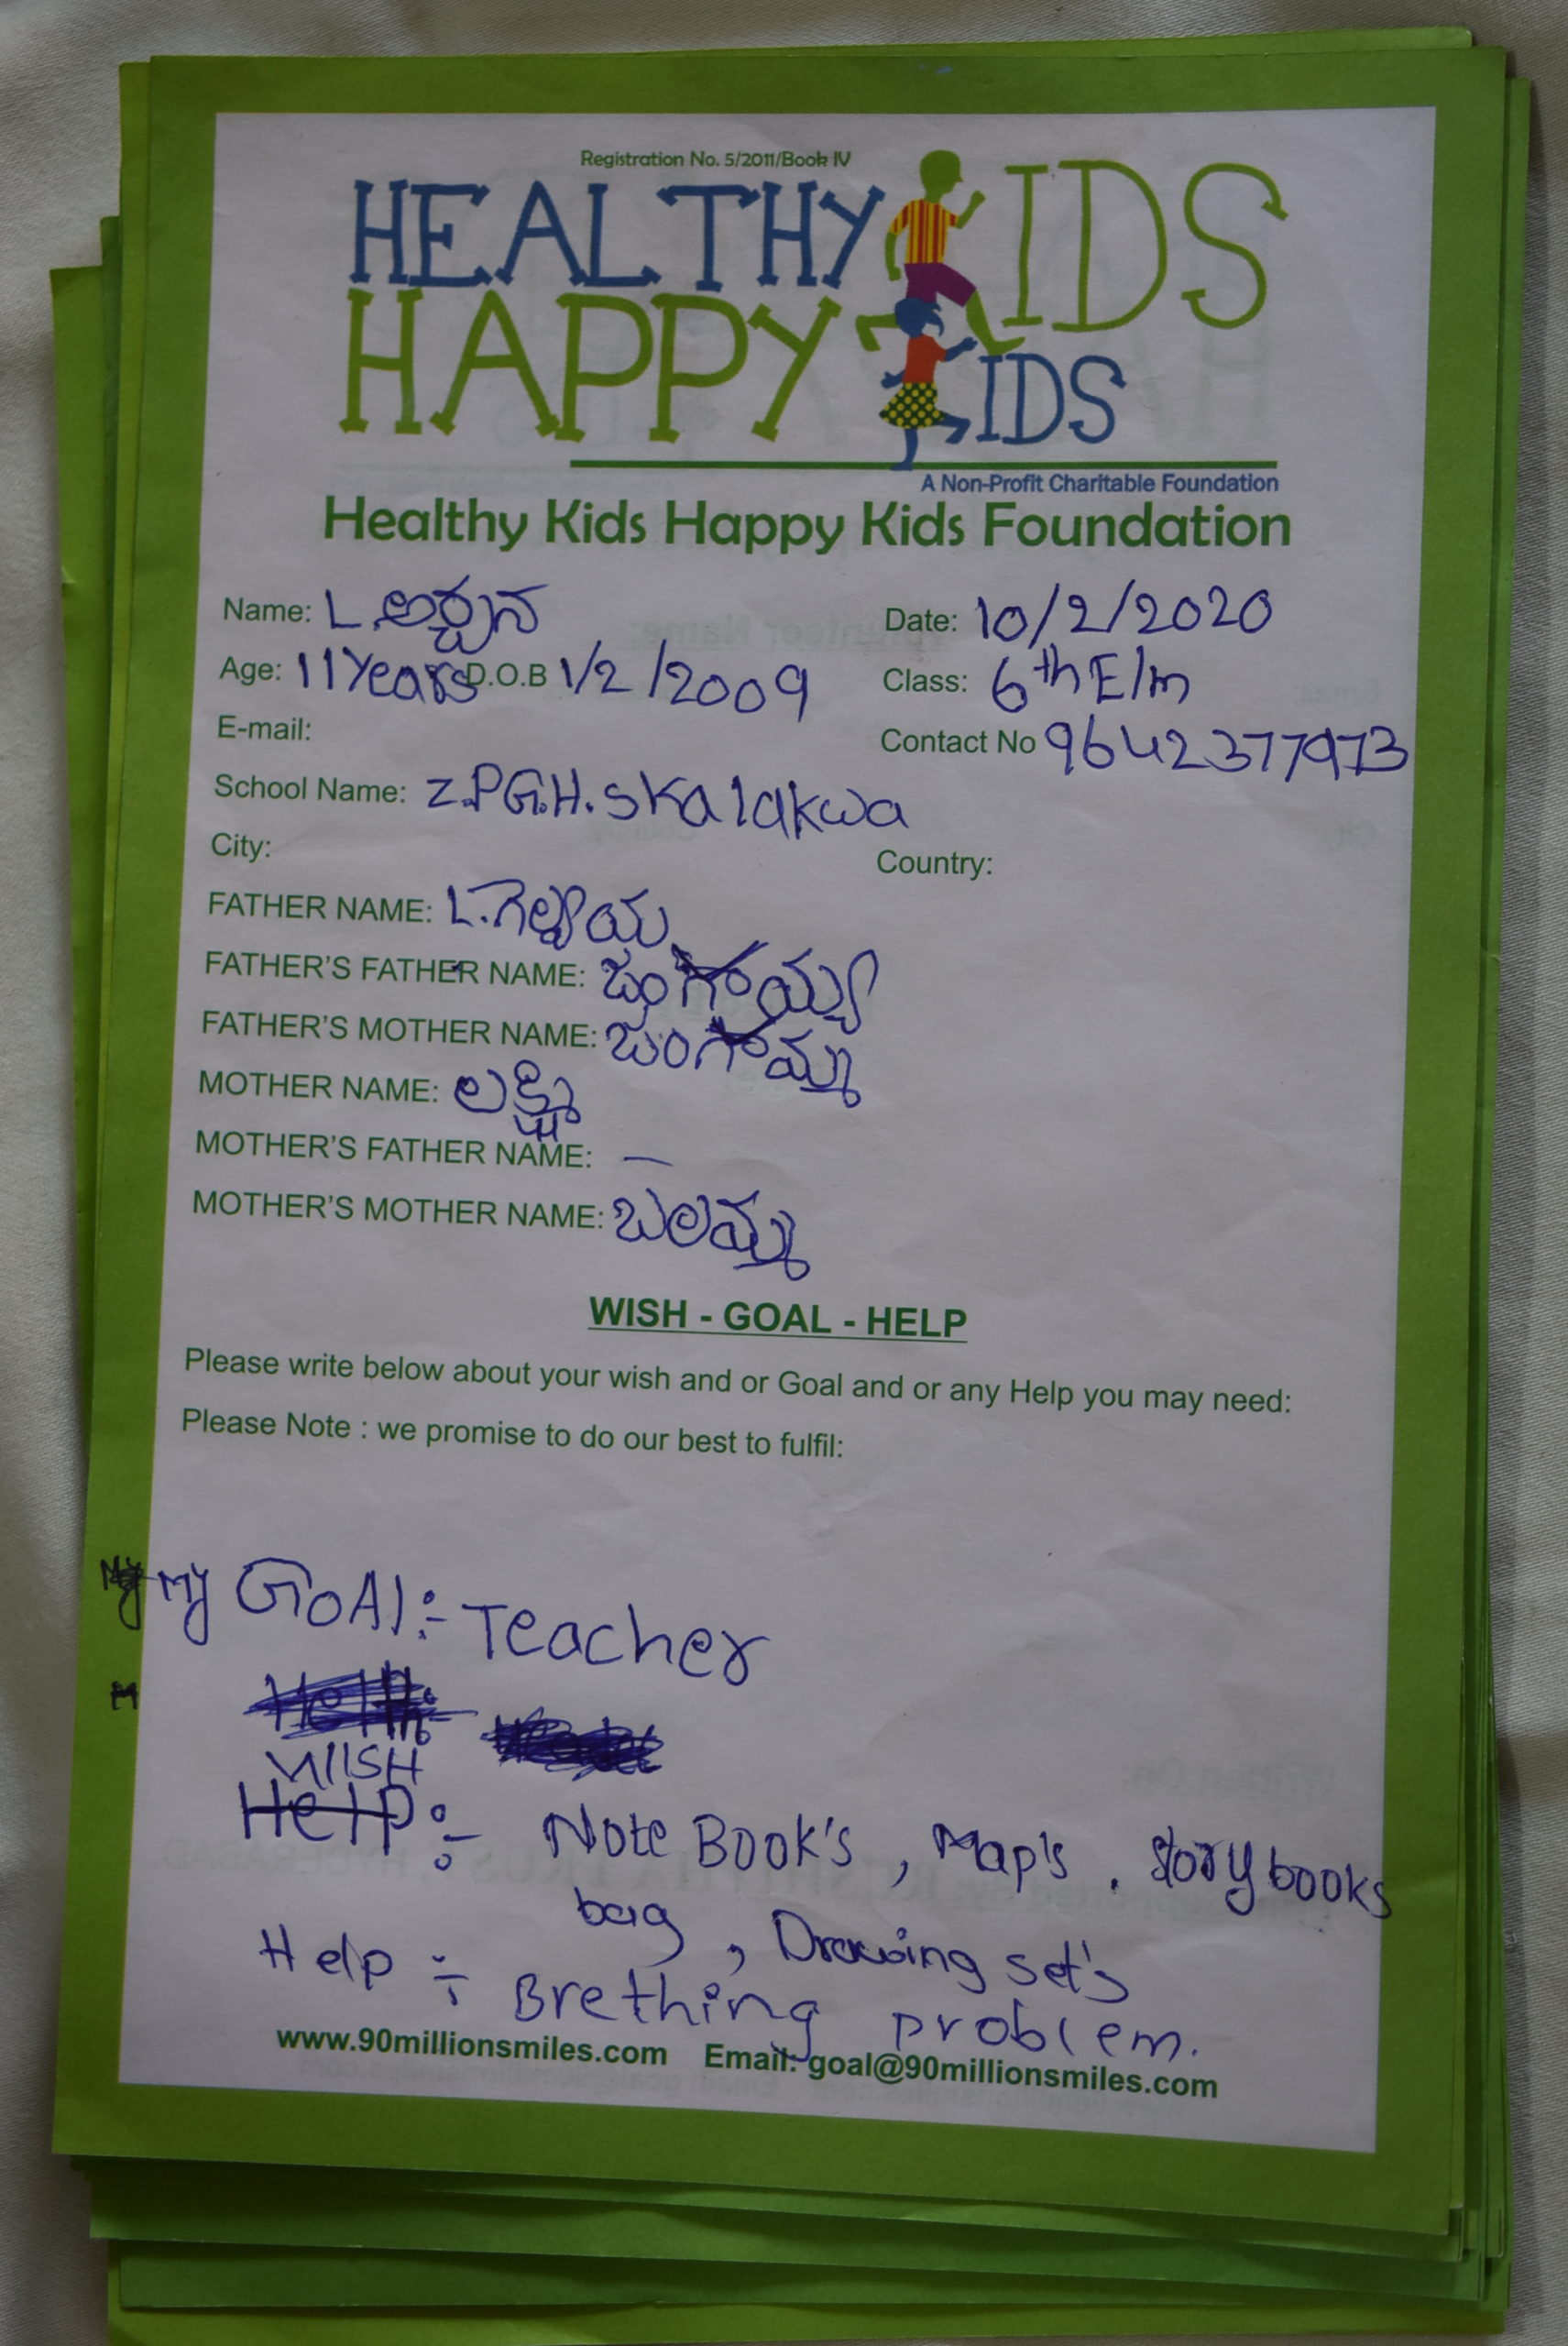 Registration No. 5/2011/Book IV
HEALTHY KIDS
HAPPY KIDS
A Non-Profit Charitable Foundation
Healthy Kids Happy Kids Foundation
Name: L.అర్చన Date: 10/2/2020
Age: 11 Years D.O.B 1/2/2009 Class: 6th E/m
E-mail: Contact No 9642377973
School Name: Z.P.G.H.S Kalakwa
City: Country:
FATHER NAME: L.
FATHER'S FATHER NAME: జంగయ్య
FATHER'S MOTHER NAME: జంగమ్మ
MOTHER NAME: లక్ష్మి
MOTHER'S FATHER NAME: —
MOTHER'S MOTHER NAME: బలమ్మ
WISH - GOAL - HELP
Please write below about your wish and or Goal and or any Help you may need:
Please Note : we promise to do our best to fulfil:
My GOAl:- Teacher
WISH
Help:- Note Book's, Map's, Story books
bag, Drawing set's
Help :- Brething problem.
www.90millionsmiles.com Email: goal@90millionsmiles.com